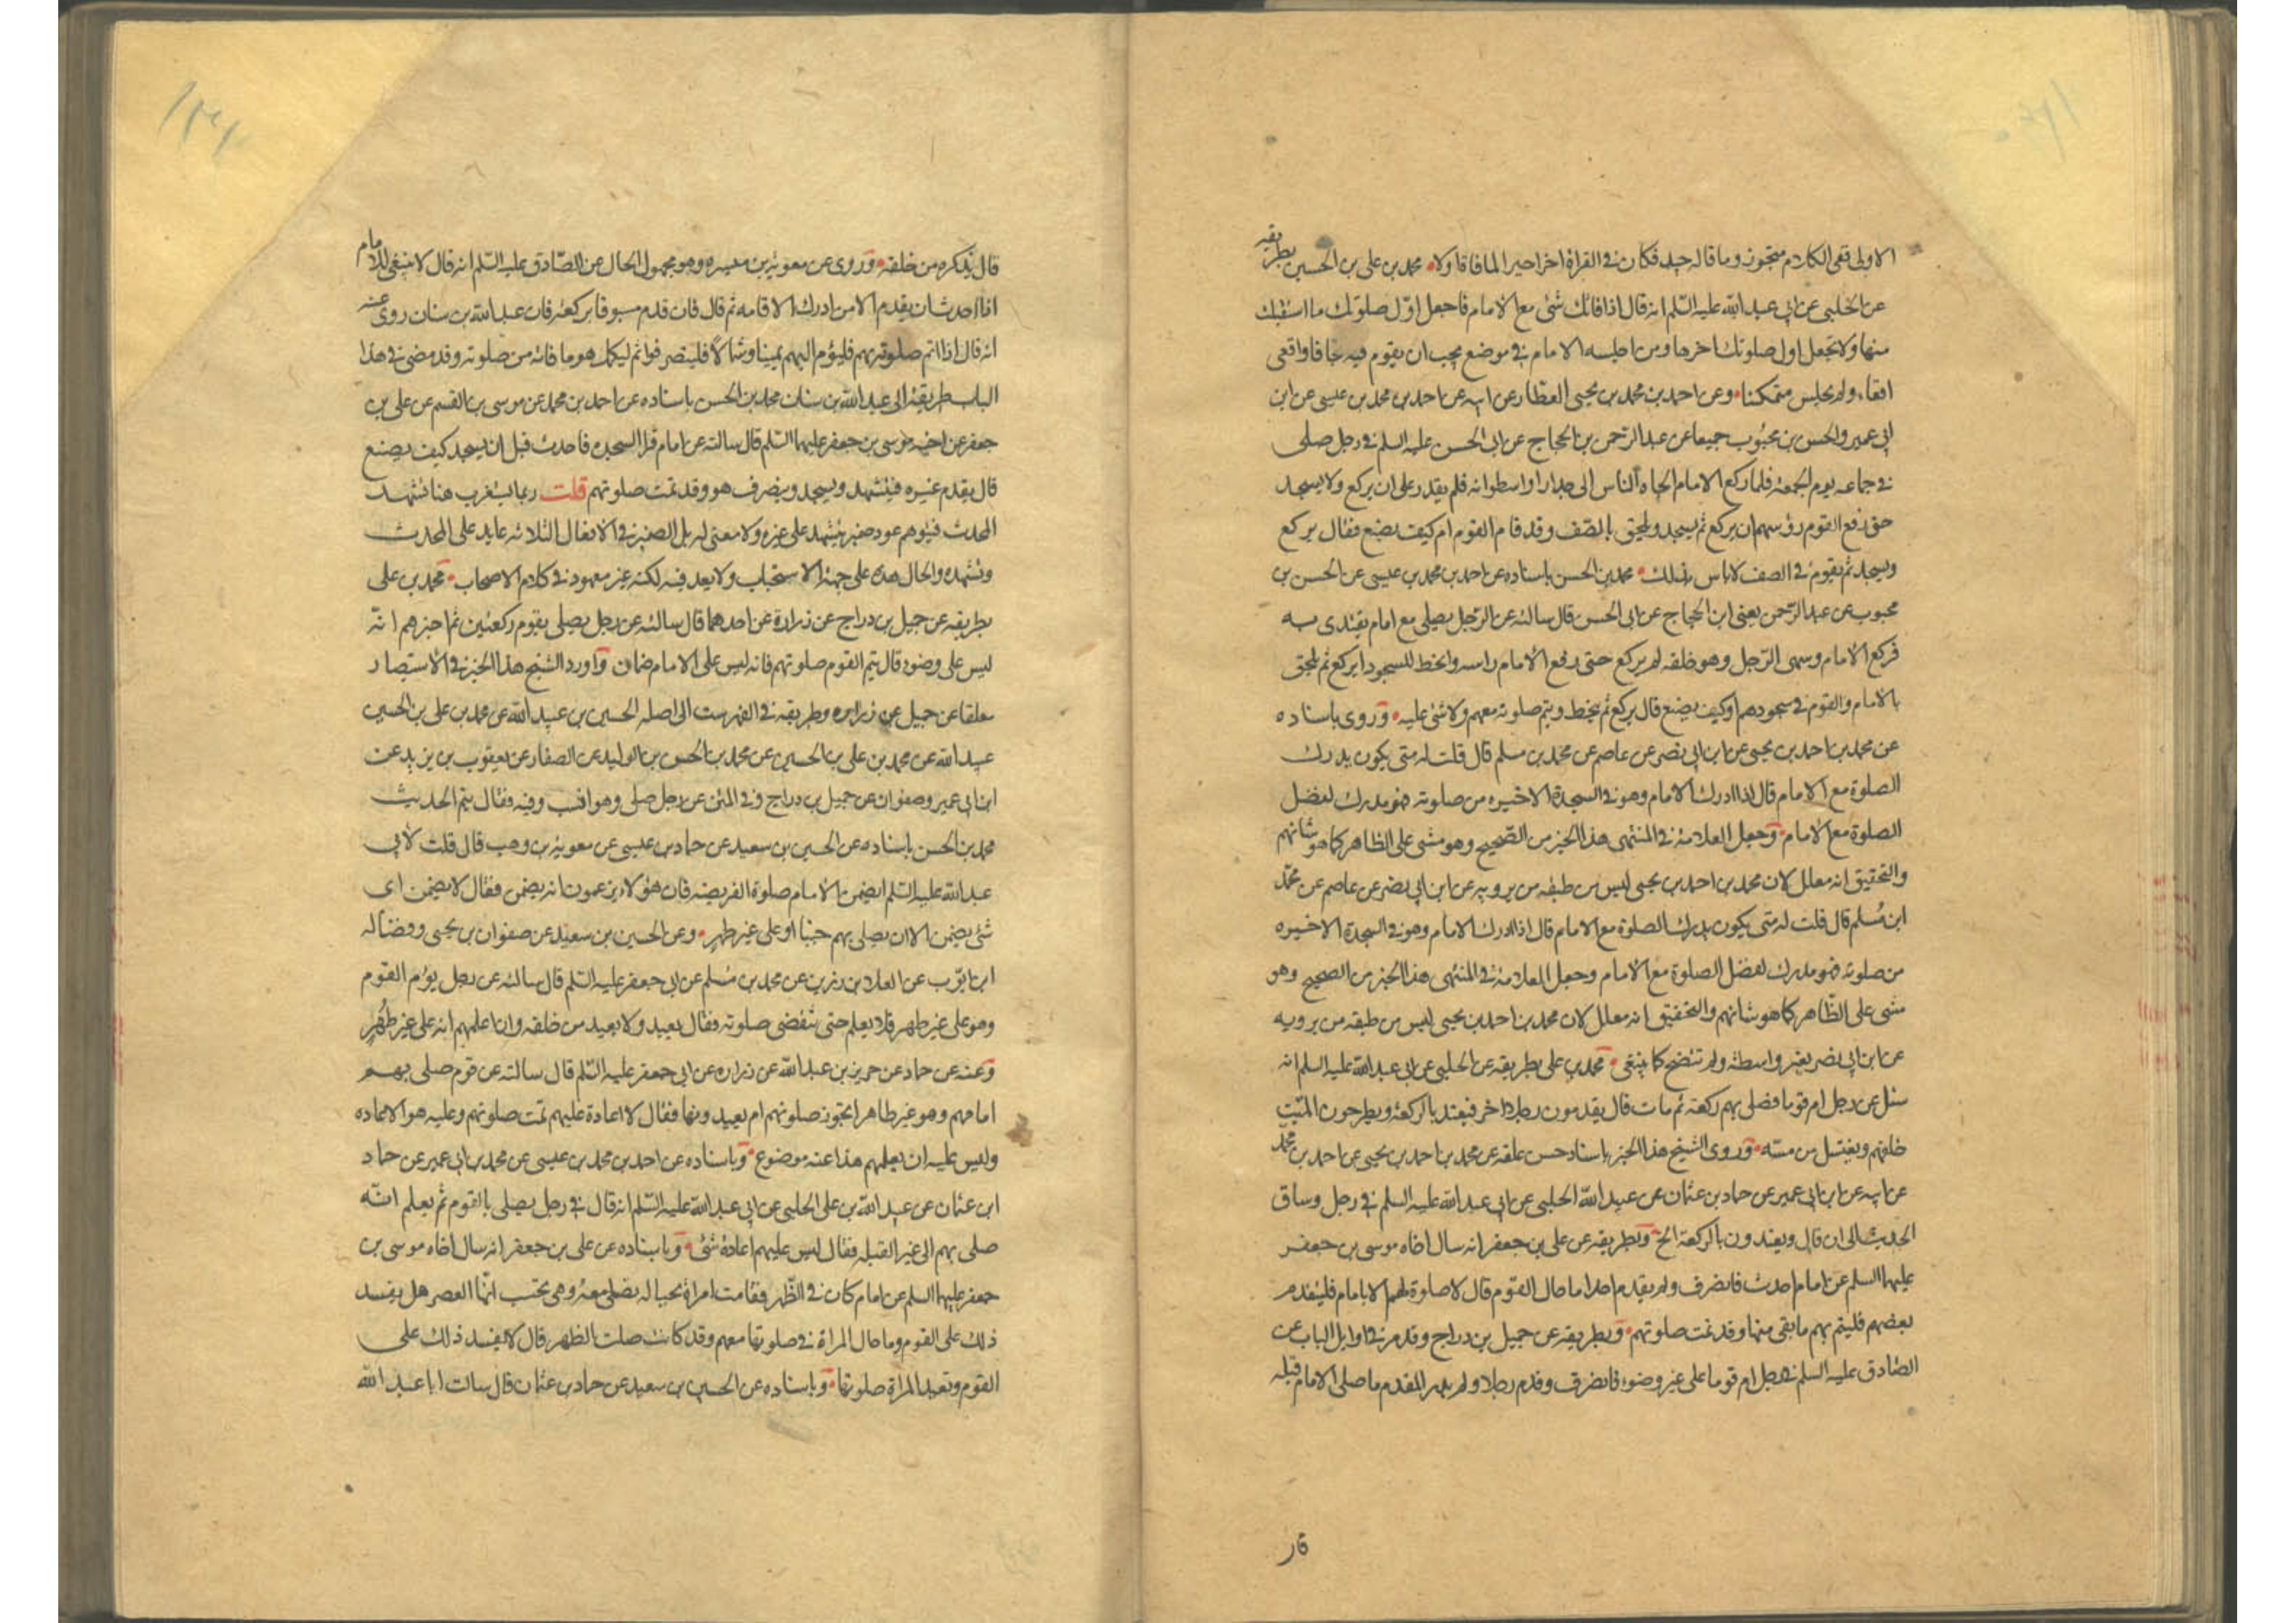 الاولى ففى الكلام متجوز وما قاله جيد فكان فى القراة اخراجيرا لما فاقا ولا محمد بن على بن الحسين بطريقه
عن الحلبى عن ابى عبد الله عليه السلم انه قال اذا فاتك شئ مع الامام فاجعل اول صلوتك ما استقبلت
منها ولا تجعل اول صلوتك اخرها ومن اجلسه الامام فى موضع يجب ان يقوم فيه تجافا واقعى
اقعاء ولم يجلس متمكنا وعن احمد بن محمد بن يحيى العطار عن ابيه عن احمد بن محمد بن عيسى عن ابن
ابى عمير والحسن بن محبوب جميعا عن عبد الرحمن بن الحجاج عن ابى الحسن عليه السلم فى رجل صلى
فى جماعه يوم الجمعة فلما ركع الامام الجاه الناس الى جدار او اسطوانه فلم يقدر على ان يركع ولا يسجد
حتى رفع القوم رؤسهم ان يركع ثم يسجد ويلحق بالصف وقد قام القوم ام كيف يصنع فقال يركع
ويسجد ثم يقوم فى الصف لا باس بذلك محمد بن الحسن باسناده عن احمد بن محمد بن عيسى عن الحسن بن
محبوب عن عبد الرحمن يعنى ابن الحجاج عن ابى الحسن قال سالته عن الرجل يصلى مع امام يقتدى به
فركع الامام وسهى الرجل وهو خلفه لم يركع حتى رفع الامام راسه وانحط للسجود ايركع ثم يلحق
بالامام والقوم فى سجودهم او كيف يصنع قال يركع ثم ينحط ويتم صلوته معهم ولا شئ عليه وروى باسناده
عن محمد بن احمد بن يحيى عن ابن ابى نصر عن عاصم عن محمد بن مسلم قال قلت له متى يكون يدرك
الصلوة مع الامام قال اذا ادرك الامام وهو فى السجدة الاخيره من صلوته فهو مدرك لفضل
الصلوة مع الامام وجعل العلامة فى المنتهى هذا الخبر من الصحيح وهو مشى على الظاهر كما هو شانهم
والتحقيق انه معلل لان محمد بن احمد بن يحيى ليس من طبقه من يرويه عن ابن ابى نصر عن عاصم عن محمد
ابن مسلم قال قلت له متى يكون يدرك الصلوة مع الامام قال اذا ادرك الامام وهو فى السجدة الاخيره
من صلوته فهو مدرك لفضل الصلوة مع الامام وجعل العلامة فى المنتهى هذا الخبر من الصحيح وهو
مشى على الظاهر كما هو شانهم والتحقيق انه معلل لان محمد بن احمد بن يحيى ليس من طبقه من يرويه
عن ابن ابى نصر بغير واسطة ولم تتضح كما ينبغى محمد بن على بطريقه عن الحلبى عن ابى عبد الله عليه السلم انه
سئل عن رجل ام قوما فصلى بهم ركعة ثم مات قال يقدمون رجلا اخر فيعتد بالركعة ويطرحون الميت
خلفهم ويغتسل من مسه وروى الشيخ هذا الخبر باسناد حسن علقه عن محمد بن احمد بن يحيى عن احمد بن محمد
عن ابيه عن ابن ابى عمير عن حماد بن عثمان عن عبيد الله الحلبى عن ابى عبد الله عليه السلم فى رجل وساق
الحديث الى ان قال ويعتدون بالركعة الخ وبطريقه عن على بن جعفر انه سال اخاه موسى بن جعفر
عليهما السلم عن امام احدث فانصرف ولم يقدم احدا ما حال القوم قال لا صلوة لهم الا بامام فليقدم
بعضهم فليتم بهم ما بقى منها وقد تمت صلوتهم وبطريقه عن جميل بن دراج وقد مر فى اوايل الباب عن
الصادق عليه السلم فى رجل ام قوما على غير وضوء فانصرف وقدم رجلا ولم يدر المقدم ما صلى الامام قبله
قال
قال يذكره من خلفه وروى عن معوية بن ميسره وهو مجهول الحال عن الصادق عليه السلم انه قال لا ينبغى للامام
اذا احدث ان يقدم الا من ادرك الاقامه ثم قال فان قدم مسبوقا بركعة فان عبد الله بن سنان روى عنه
انه قال اذا اتم صلوته بهم فليؤم اليهم يمينا وشمالا فلينصرفوا ثم ليكمل هو ما فاته من صلوته وقد مضى فى هذا
الباب طريقة الى عبد الله بن سنان محمد بن الحسن باسناده عن احمد بن محمد عن موسى بن القسم عن على بن
جعفر عن اخيه موسى بن جعفر عليهما السلم قال سالته عن امام قرا السجده فاحدث قبل ان يسجد كيف يصنع
قال يقدم غيره فيتشهد ويسجد وينصرف هو وقد تمت صلوتهم قلت ربما يستغرب هنا تشهد
المحدث فيتوهم عود ضمير يتشهد على غيره ولا معنى له بل الضمير فى الافعال الثلاثه عايد على المحدث
وتشهده والحال هذه على جهة الاستحباب ولا بعد فيه لكنه غير معهود فى كلام الاصحاب محمد بن على
بطريقه عن جميل بن دراج عن زرارة عن احدهما قال سالته عن رجل يصلى بقوم ركعتين ثم اخبرهم انه
ليس على وضوء قال يتم القوم صلوتهم فانه ليس على الامام ضمان واورد الشيخ هذا الخبر فى الاستبصار
معلقا عن جميل عن زراره وطريقه فى الفهرست الى اصله الحسين بن عبيد الله عن محمد بن على بن الحسين
عبيد الله عن محمد بن على بن الحسين عن محمد بن الحسن بن الوليد عن الصفار عن يعقوب بن يزيد عن
ابن ابى عمير وصفوان عن جميل بن دراج وفى المتن عن رجل صلى وهو انسب وفيه فقال يتم الحديث
محمد بن الحسن باسناده عن الحسين بن سعيد عن حماد بن عيسى عن معوية بن وهب قال قلت لابى
عبد الله عليه السلم ايضمن الامام صلوة الفريضه فان هؤلاء يزعمون انه يضمن فقال لا يضمن اى
شئ يضمن الا ان يصلى بهم جنبا او على غير طهر وعن الحسين بن سعيد عن صفوان بن يحيى وفضاله
ابن ايوب عن العلا بن رزين عن محمد بن مسلم عن ابى جعفر عليه السلم قال سالته عن رجل يؤم القوم
وهو على غير طهر فلا يعلم حتى تنقضى صلوته فقال يعيد ولا يعيد من خلفه وان اعلمهم انه على غير طهر
وعنه عن حماد عن حريز بن عبد الله عن زراره عن ابى جعفر عليه السلم قال سالته عن قوم صلى بهم
امامهم وهو غير طاهر اتجوز صلوتهم ام يعيدونها فقال لا اعادة عليهم تمت صلوتهم وعليه هو الاعاده
وليس عليه ان يعلمهم هذا عنه موضوع وباسناده عن احمد بن محمد بن عيسى عن محمد بن ابى عمير عن حماد
ابن عثمان عن عبيد الله بن على الحلبى عن ابى عبد الله عليه السلم انه قال فى رجل يصلى بالقوم ثم يعلم انه
صلى بهم الى غير القبله فقال ليس عليهم اعادة شئ وباسناده عن على بن جعفر انه سال اخاه موسى بن
جعفر عليهما السلم عن امام كان فى الظهر فقامت امراة بحياله تصلى معه وهى تحتسب انها العصر هل يفسد
ذلك على القوم وما حال المراة فى صلوتها معهم وقد كانت صلت الظهر قال لا يفسد ذلك على
القوم وتعيد المراة صلوتها وباسناده عن الحسين بن سعيد عن حماد بن عثمان قال سالت ابا عبد الله